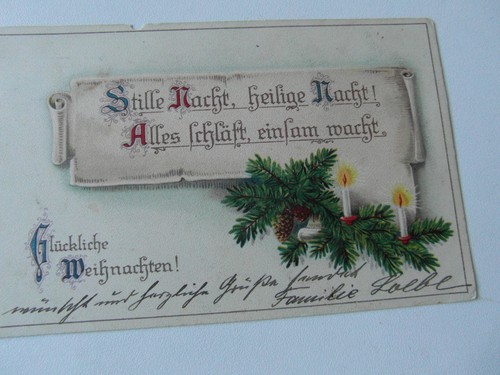 Stille Nacht, heilige Nacht!
Alles schläft, einsam wacht
Glückliche
Weihnachten!
wünscht und herzliche Grüße sendet
Familie